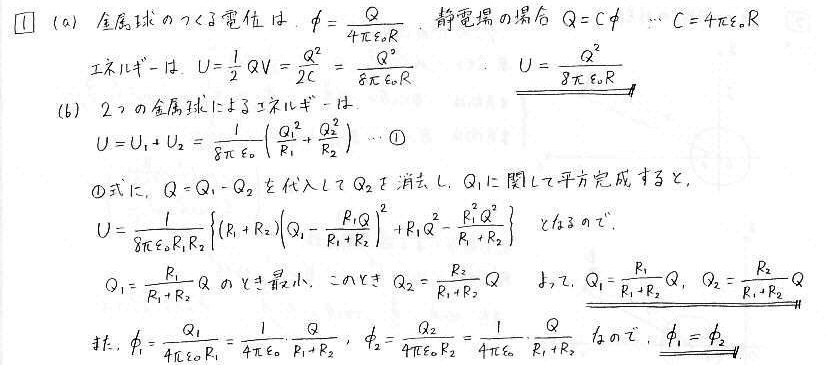 1 (a) 金属球のつくる電位は φ = Q/(4πε₀R) . 静電場の場合 Q = Cφ … C = 4πε₀R
エネルギーは U = 1/2 QV = Q²/2C = Q²/(8πε₀R) . U = Q²/(8πε₀R)
(b) 2つの金属球によるエネルギーは
U = U₁ + U₂ = 1/(8πε₀) (Q₁²/R₁ + Q₂²/R₂) … ①
①式に、Q = Q₁ - Q₂ を代入して Q₂ を消去し、Q₁ に関して平方完成すると、
U = 1/(8πε₀R₁R₂) {(R₁ + R₂)(Q₁ - R₁Q/(R₁ + R₂))² + R₁Q² - R₁²Q²/(R₁ + R₂)} となるので.
Q₁ = R₁/(R₁ + R₂) Q のとき最小. このとき Q₂ = R₂/(R₁ + R₂) Q よって, Q₁ = R₁/(R₁ + R₂) Q, Q₂ = R₂/(R₁ + R₂) Q
また, φ₁ = Q₁/(4πε₀R₁) = 1/(4πε₀) · Q/(R₁ + R₂) , φ₂ = Q₂/(4πε₀R₂) = 1/(4πε₀) · Q/(R₁ + R₂) なので, φ₁ = φ₂